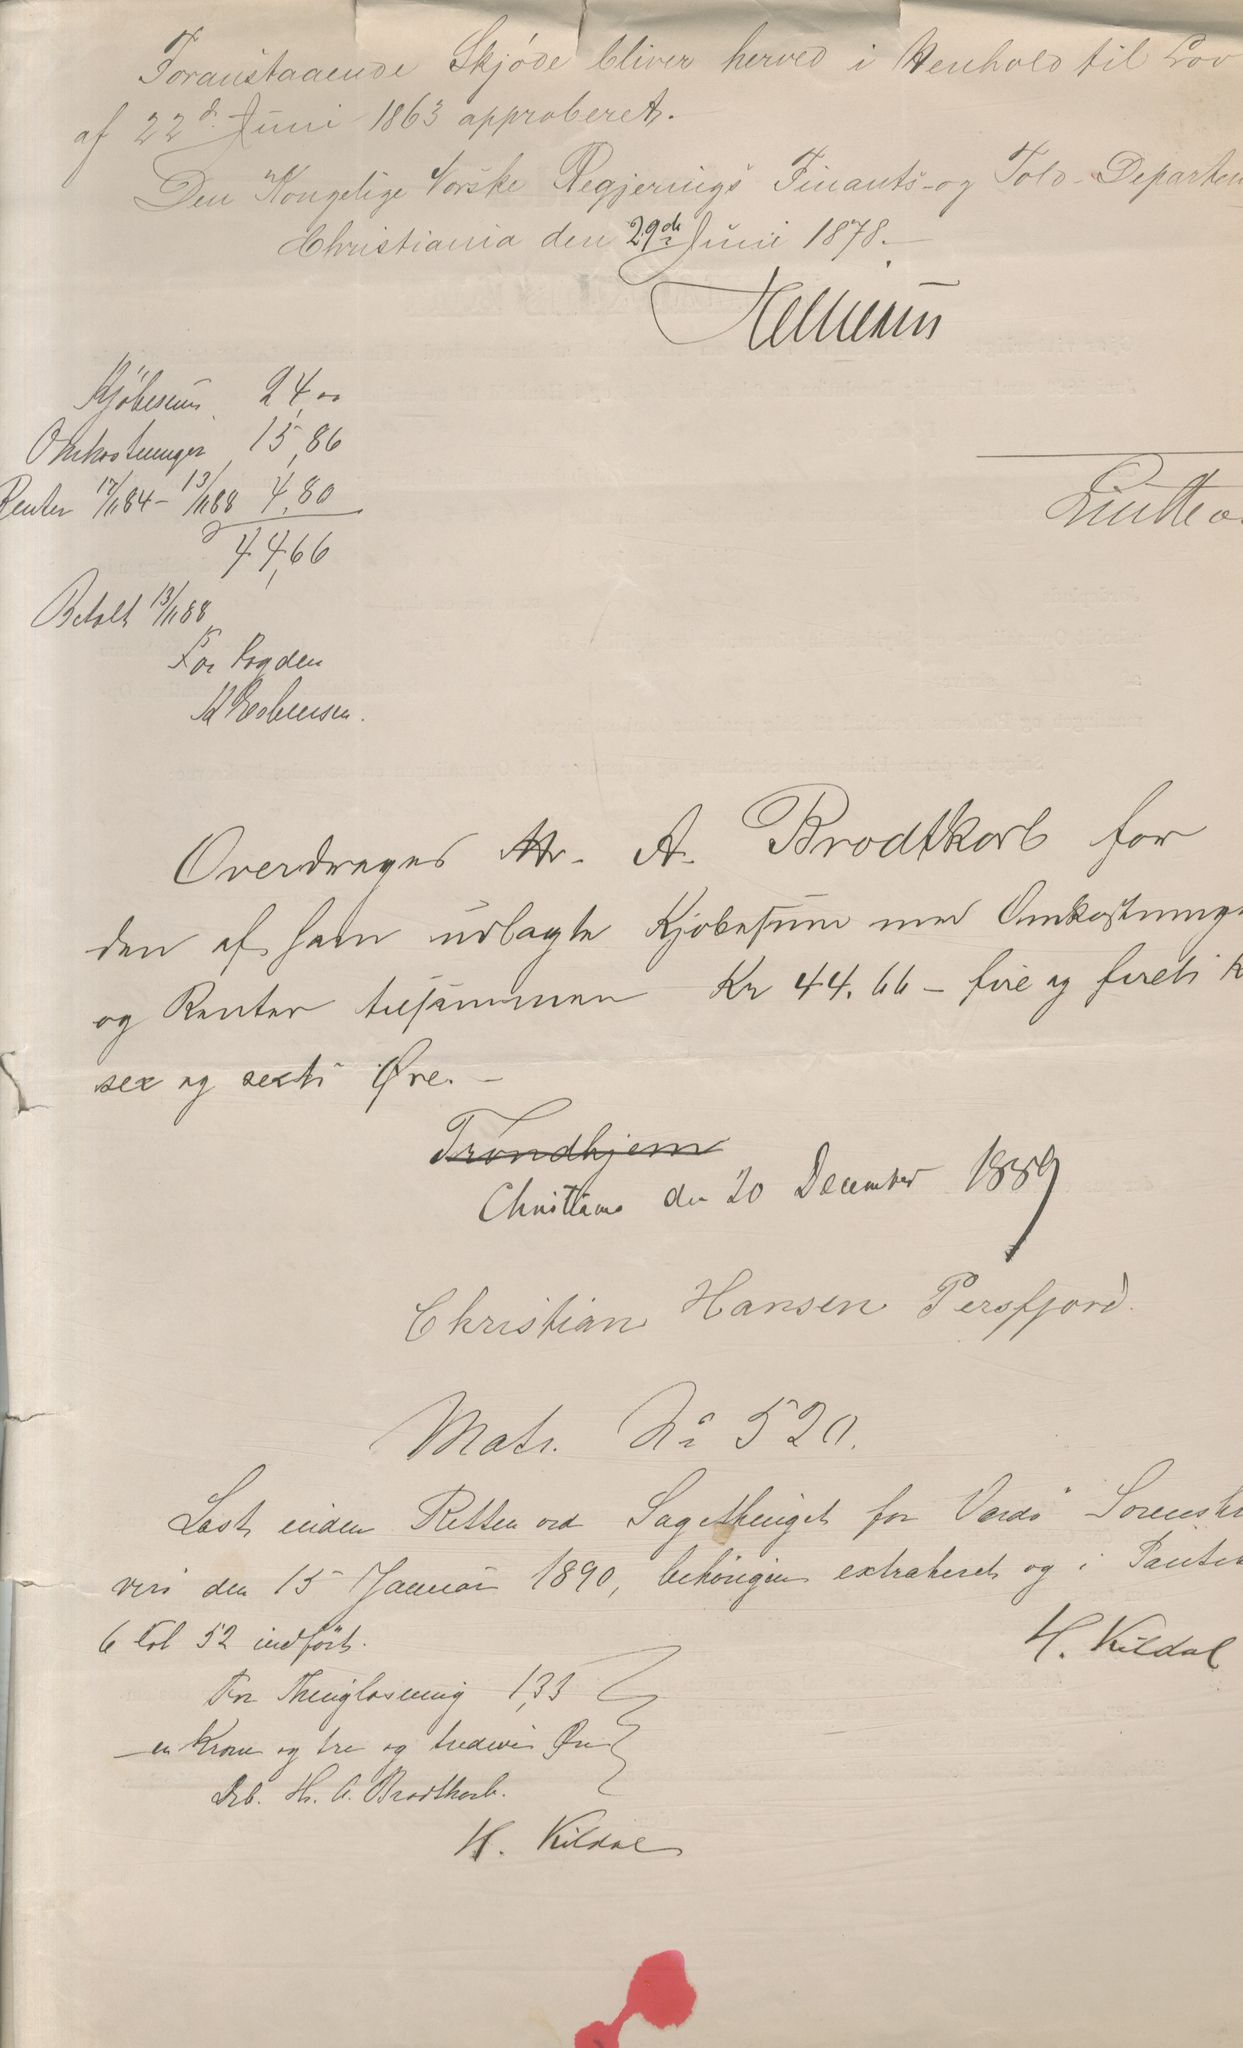 Foranstaaende Skjöde bliver herved i Henhold til Lov
af 22d Juni 1863 approberet.
Den Kongelige Norske Regjerings Finants- og Told-Departem
Christiania den 29de Juni 1878.
Helliesen
Kjöbesum 24,00
Omkostninger 15,86
Renter 12/11 84 - 13/11 88 4,80
44,66
Betalt 13/11 88
For Fogden
Esbensen.
Overdrages Hr. A. Brodtkorb for
den af ham udlagte Kjøbesum med Omkostninge
og Renter tilsammen Kr 44.66 - fire og fireti K
sex og sexti Øre. -
Trondhjem
Christiania den 20 December 1889
Christian Hansen Persfjord.
Matr. No 520.
Læst inden Retten ved Sagethinget for Vardö Sorenskri
veri den 15 Januar 1890, behörigen extraheret og i Pante
6 Fol 52 indfört.
H. Kildal
For Thinglæsning 1,33
- en Krone og tre og tredive Øre
Deb. Hr. A. Brodtkorb.
H. Kildal